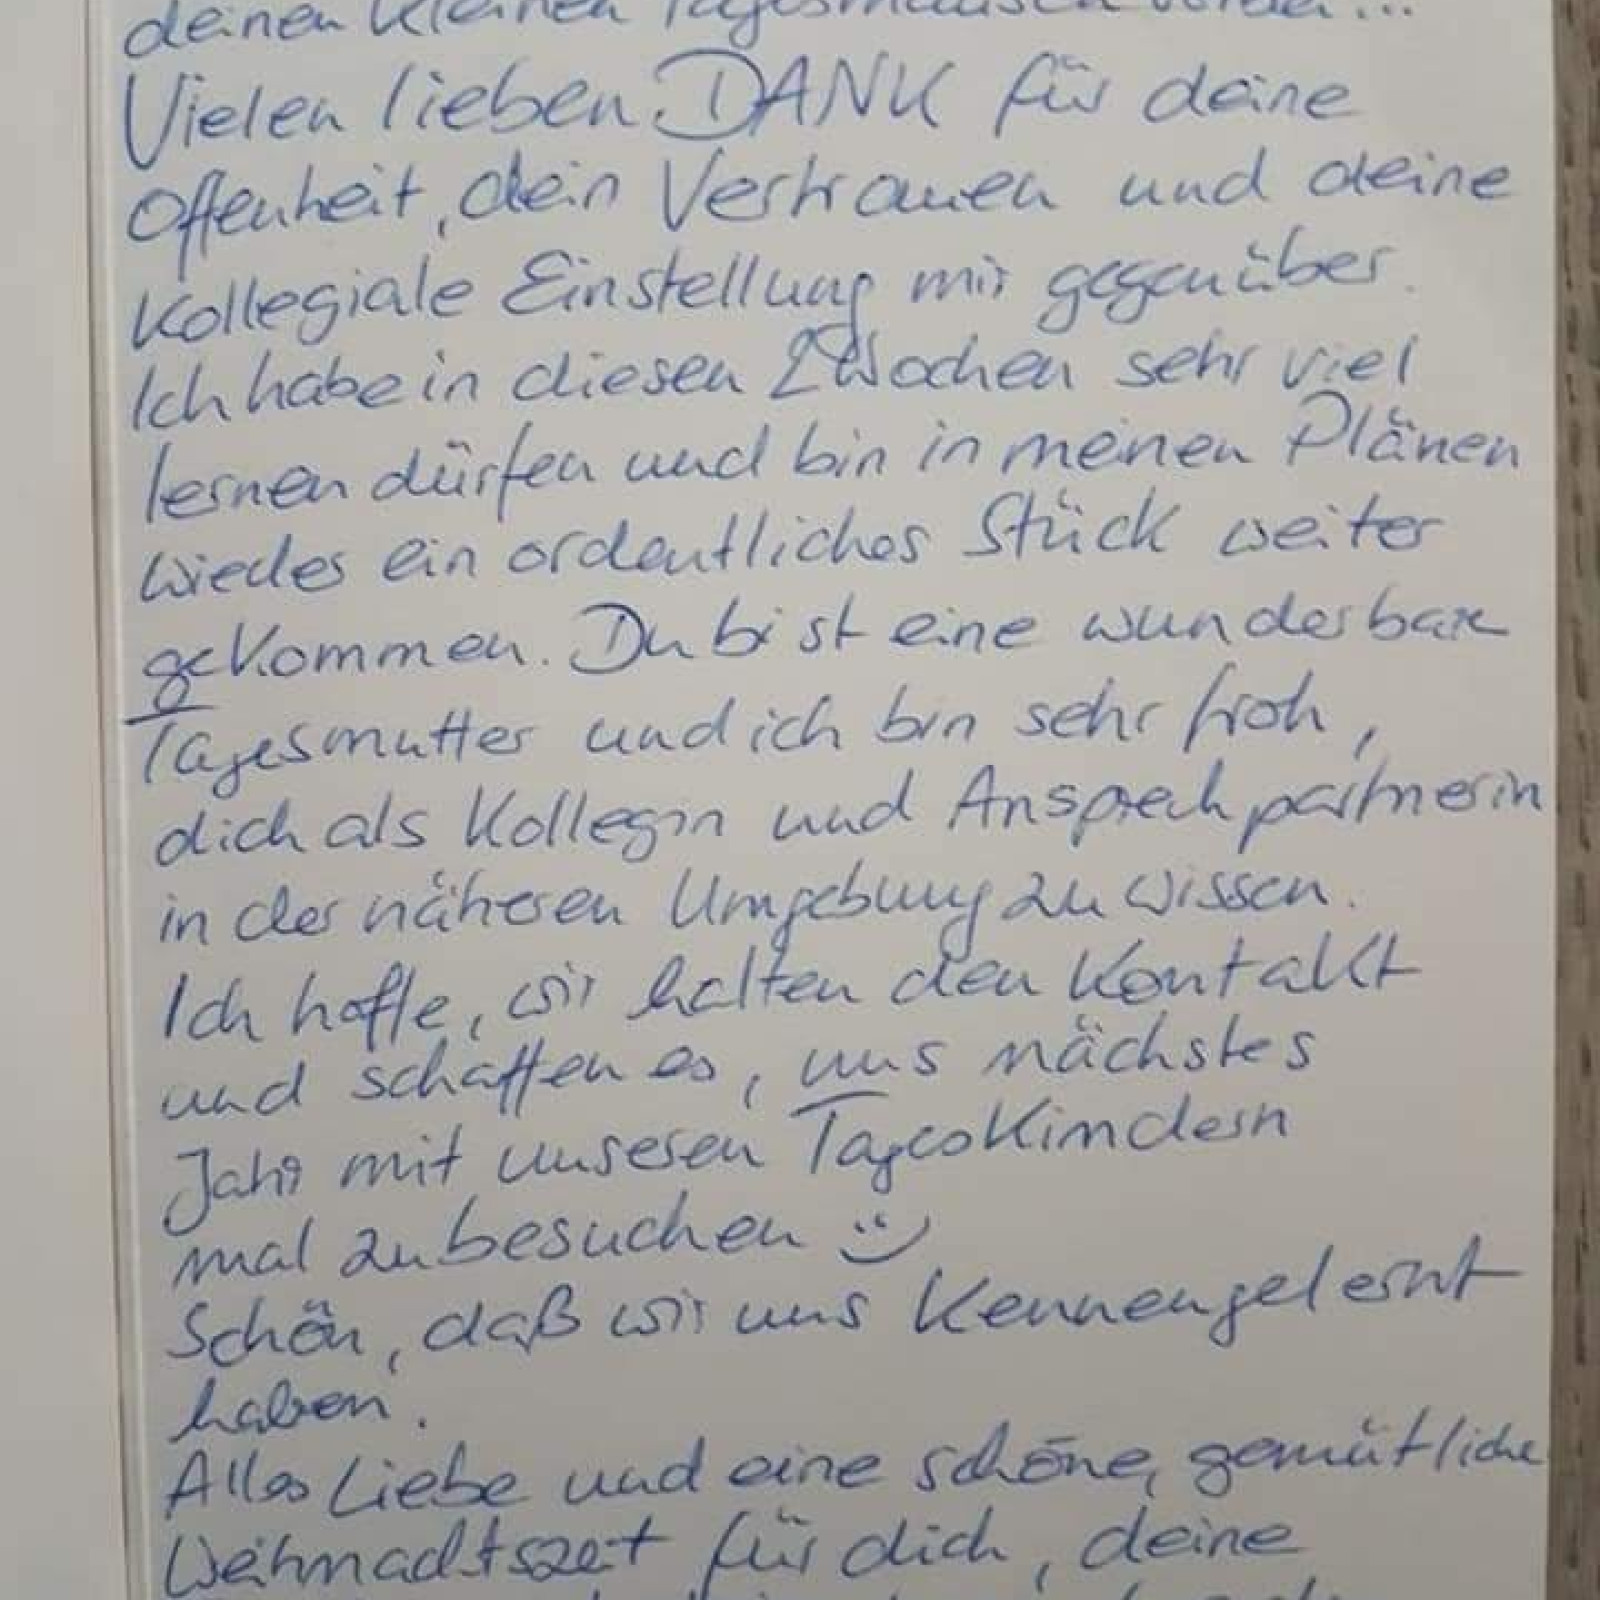 deinen kleinen Tagesmäusen vorbei...
Vielen lieben DANK für deine
Offenheit, dein Vertrauen und deine
Kollegiale Einstellung mir gegenüber.
Ich habe in diesen 2 Wochen sehr viel
lernen dürfen und bin in meinen Plänen
wieder ein ordentliches Stück weiter
gekommen. Du bist eine wunderbare
Tagesmutter und ich bin sehr froh,
dich als Kollegin und Ansprechpartnerin
in der näheren Umgebung zu wissen.
Ich hoffe, wir halten den Kontakt
und schaffen es, uns nächstes
Jahr mit unseren Tageskindern
mal zu besuchen :)
Schön, daß wir uns kennengelernt
haben.
Alles Liebe und eine schöne, gemütliche
Weihnachtszeit für dich, deine